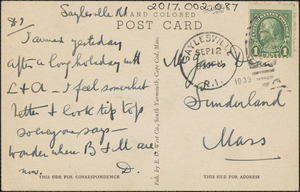 Saylesville RI
2017.002.087
HAND COLORED
POST CARD
I arrived yesterday
after a long holiday with
L & A - I feel somewhat
better & look tip top
so everyone says -
wonder where B & M are
now. D.
Pub. by E. D. West Co., South Yarmouth, Cape Cod, Mass.
SAYLESVILLE
SEP 12
1933
R.I.
1
1
Sunderland
Mass
THIS SIDE FOR CORRESPONDENCE
THIS SIDE FOR ADDRESS